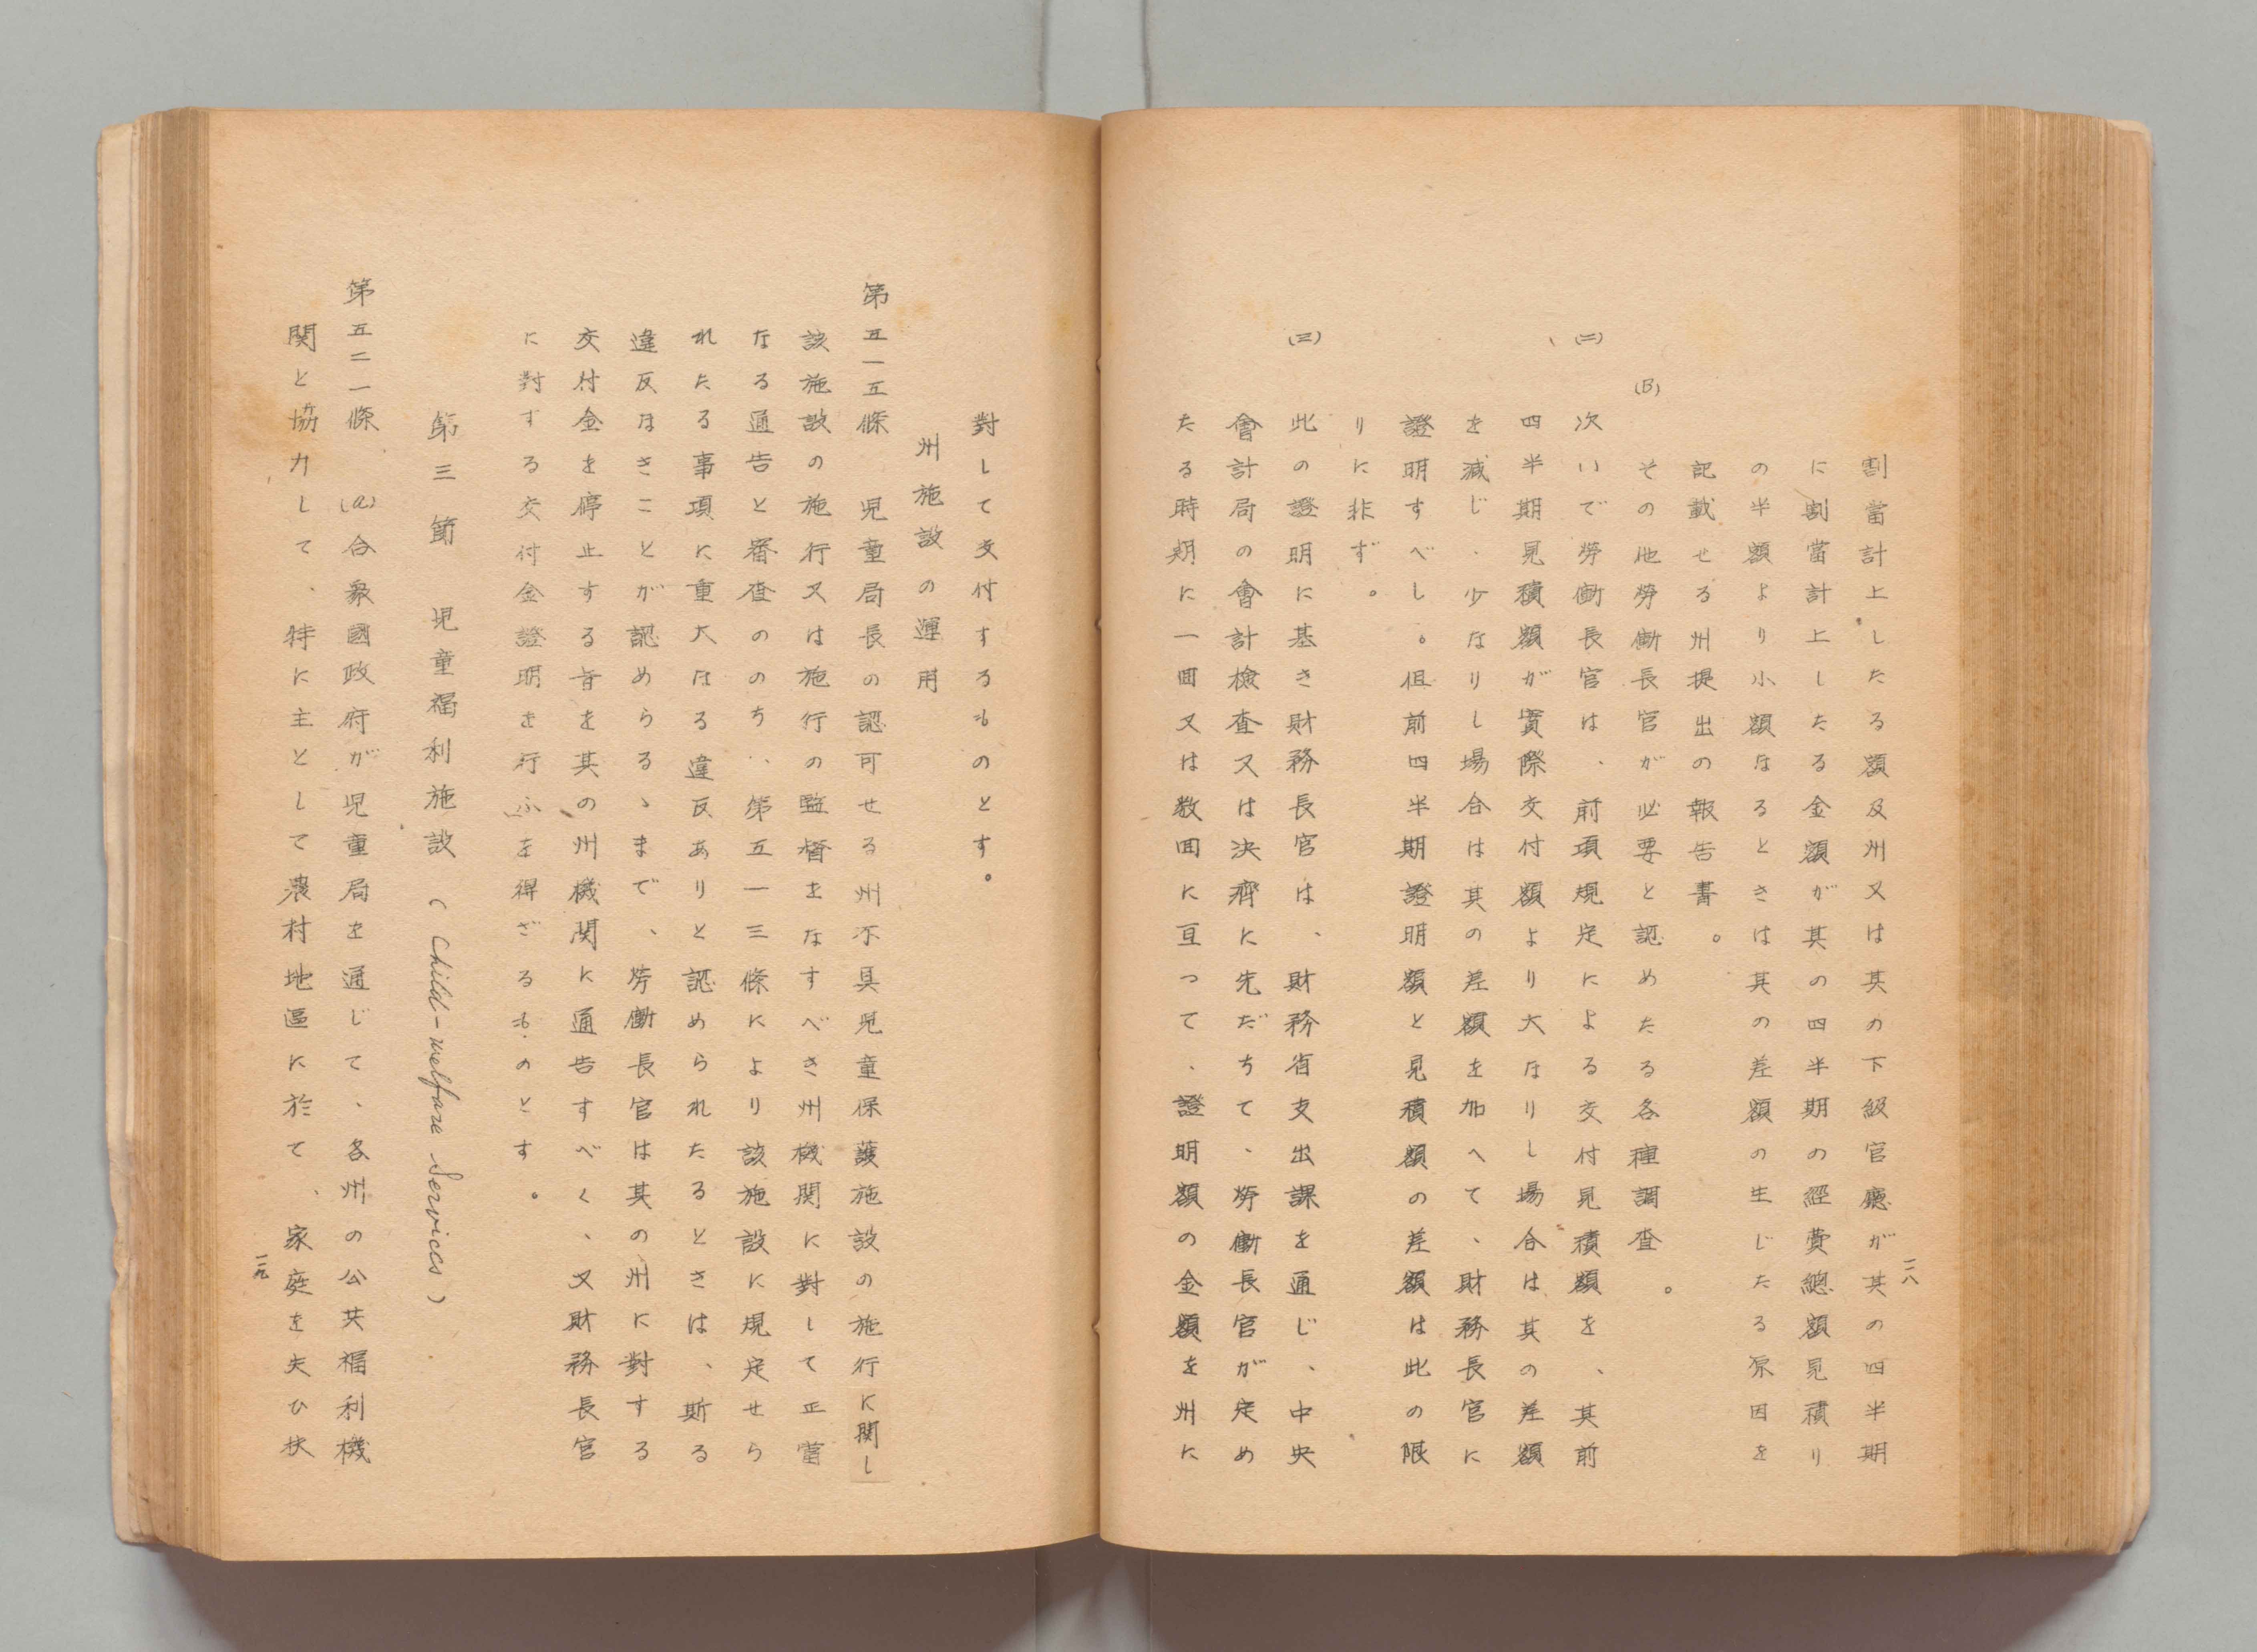 割當計上したる額及州又は其の下級官廳が其の四半期
に割當計上したる金額が其の四半期の經費總額見積り
の半額より小額なるときは其の差額の生じたる原因を
記載せる州提出の報告書。
(B) その他勞働長官が必要と認めたる各種調査。
(二) 次いで勞働長官は、前項規定による交付見積額を、其前
四半期見積額が實際交付額より大なりし場合は其の差額
を減じ、少なりし場合は其の差額を加へて、財務長官に
證明すべし。但前四半期證明額と見積額の差額は此の限
りに非ず。
(三) 此の證明に基き財務長官は、財務省支出課を通じ、中央
會計局の會計檢査又は決濟に先だちて、勞働長官が定め
たる時期に一回又は数回に亘つて、證明額の金額を州に
一一八
對して交付するものとす。
州施設の運用
第五一五條 児童局長の認可せる州不具児童保護施設の施行に関し
該施設の施行又は施行の監督をなすべき州機関に對して正當
なる通告と審査ののち、第五一三條により該施設に規定せら
れたる事項に重大なる違反ありと認められたるときは、斯る
違反なきことが認めらるゝまで、勞働長官は其の州に對する
交付金を停止する旨を其の州機関に通告すべく、又財務長官
に對する交付金證明を行ふを得ざるものとす。
第三節 児童福利施設 (Child-welfare Services)
第五二一條 (a) 合衆國政府が児童局を通じて、各州の公共福利機
関と協力して、特に主として農村地區に於て、家庭を失ひ扶
一一九